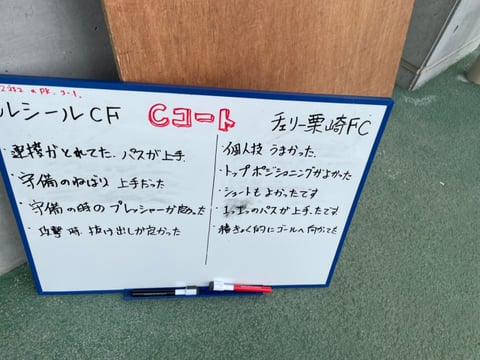 Cコート
ルシールCF
・連携がとれてた。パスが上手
・守備のねばり 上手だった
・守備の時のプレッシャーが良かった
・攻撃時、抜け出しが良かった
チェリー栗崎FC
・個人技 うまかった。
・トップポジショニングがよかった
・シュートもよかったです
のパスが上手たです
・積きょく的にゴールへ向かってた